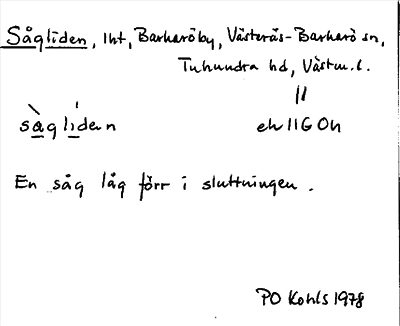 Sågliden, lht, Barkaröby, Västerås-Barkarö sn,
Tuhundra hd, Västm.l.
sàglíden
ek 11G Oh
En såg låg förr i sluttningen.
PO Kohls 1978